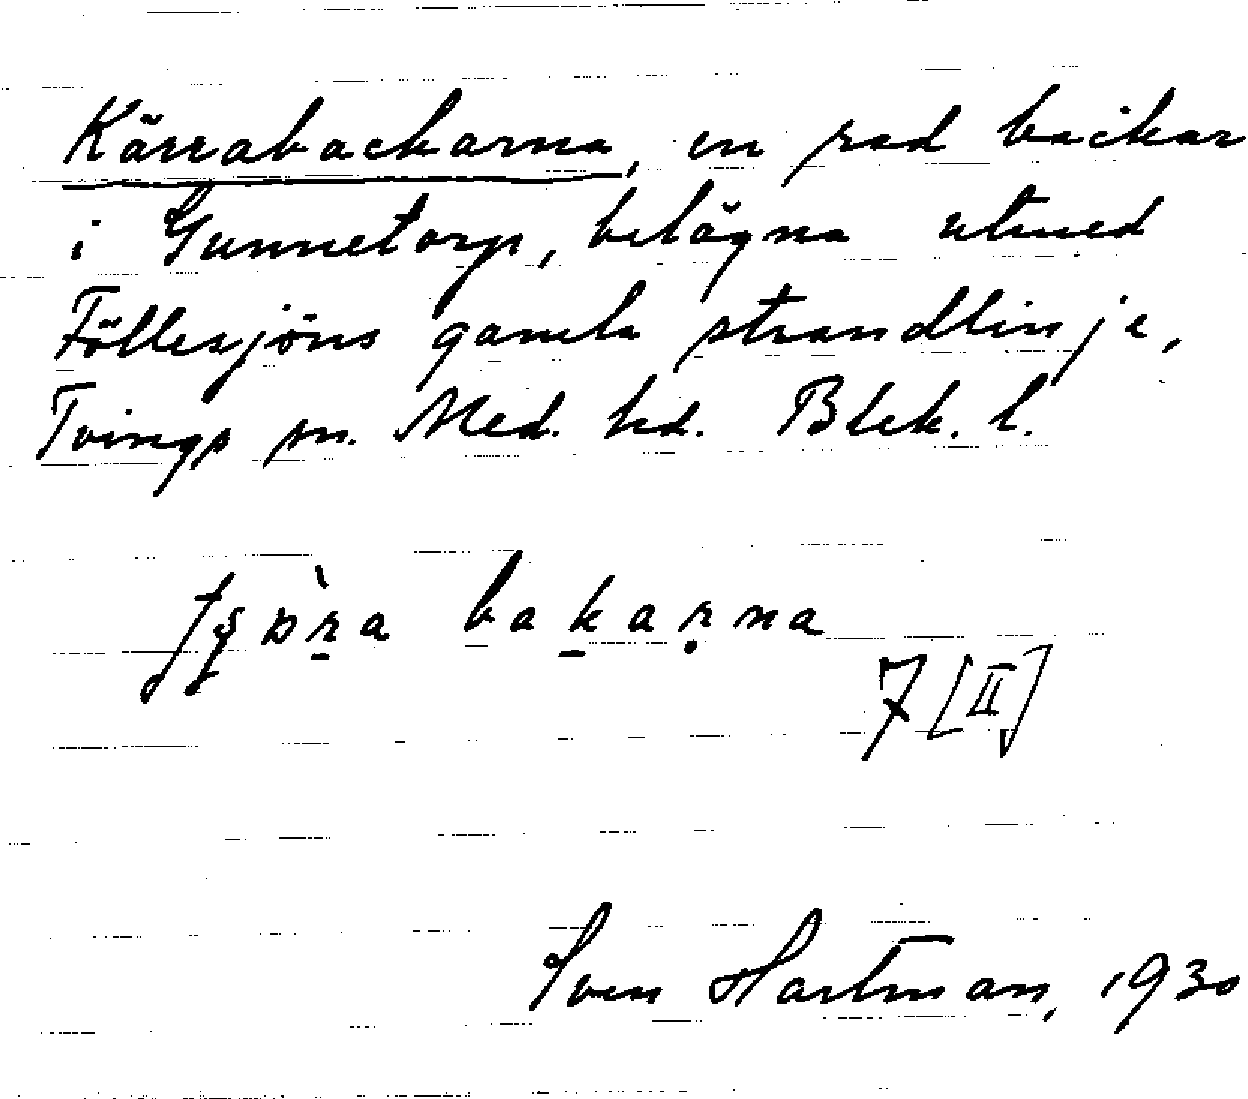 Kärrabackarna, en rad backar
i Gunnetorp, belägna utmed
Föllesjöns gamla strandlinje,
Tvings sn. Med. hd. Blek. l.
bakarna
7 [II]
Sven Hartman, 1930